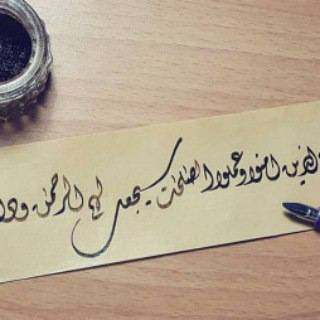 الذين امنوا وعملوا الصلحت سيجعل لهم الرحمن ودا